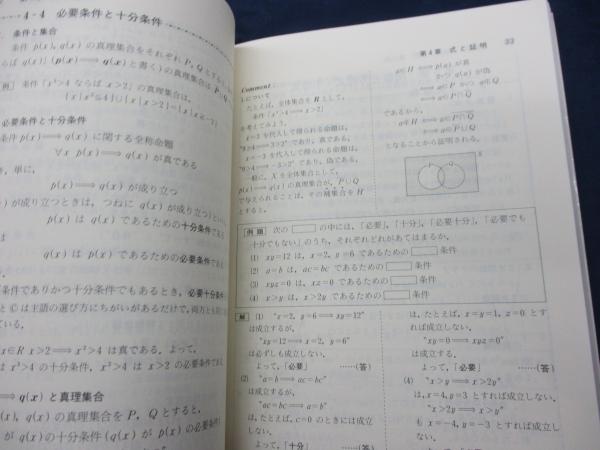 4-4 必要条件と十分条件
条件と集合
条件 p(x), q(x) の真理集合をそれぞれ P, Q と
ならば q(x)」(p(x)⟹q(x) と書く)の真理集合は P̄∪Q
条件「x²>4 ならば x>2」の真理集合は,
{x|x²≦4}∪{x|x>2}={x|x≧-2}
必要条件と十分条件
条件 p(x)⟹q(x) に関する全称命題
∀x p(x)⟹q(x) が真である
単に,
p(x)⟹q(x) が成り立つ
が成り立つときは, つねに q(x) が成り立つ)という
p(x) は q(x) であるための十分条件であり
は
q(x) は p(x) であるための必要条件である
条件でありかつ十分条件でもあるとき, 必要十分条件
と は主語の選び方にちがいがあるだけで,
ている。
x∈R x>2⟹x²>4 は真である。よって,
x²>4 の十分条件, x²>4 は x>2 の必要条件
q(x) と真理集合
q(x) の真理集合を P, Q とすると,
が q(x) の十分条件(q(x) が p(x) の必要条件)
第4章 式と証明 33
Comment
1.について
たとえば, 全体集合を R として,
条件「x²>4⟹x>2」
を考えてみよう。
x=3 を代入して得られる命題は,
"9>4⟹3>2" であり, 真である。
x=-3 を代入して得られる命題は,
"9>4⟹-3>2" であり, 偽である。
一般に, X を全体集合として,
p(x)⟹q(x) の真理集合が, P̄∪Q
で与えられることは, その補集合を H
とすると,
a∈H ⟺ p(a) が真
かつ q(a) が偽
⟺ a∈P かつ a∈Q̄
⟺ a∈P∩Q̄
であるから,
となることから証明される。
例題 次の□の中には,「必要」,「十分」,「必要十分」,「必要でも
十分でもない」のうち, それぞれどれがあてはまるか。
(1) xy=12 は, x=2, y=6 であるための□条件
(2) a=b は, ac=bc であるための□条件
(3) xyz=0 は, xz=0 であるための□条件
(4) x>y は, x>2y であるための□条件
解 (1) "x=2, y=6⟹xy=12"
は成立するが,
"xy=12⟹x=2, y=6"
は必ずしも成立しない。
よって,「必要」 ……(答)
(2) "a=b⟹ac=bc"
は成立するが,
"ac=bc⟹a=b"
は, たとえば, c=0 のときには成立
しない。
よって,「十分」 ……(答)
は, たとえば, x=y=1, z=0 とす
れば成立しない。
"xy=0⟹xyz=0"
は成立する。
よって,「必要」 ……(答)
(4) "x>y⟹x>2y"
は, x=4, y=3 とすれば成立しない。
"x>2y⟹x>y"
も x=-4, y=-3 とすれば成立し
ない。